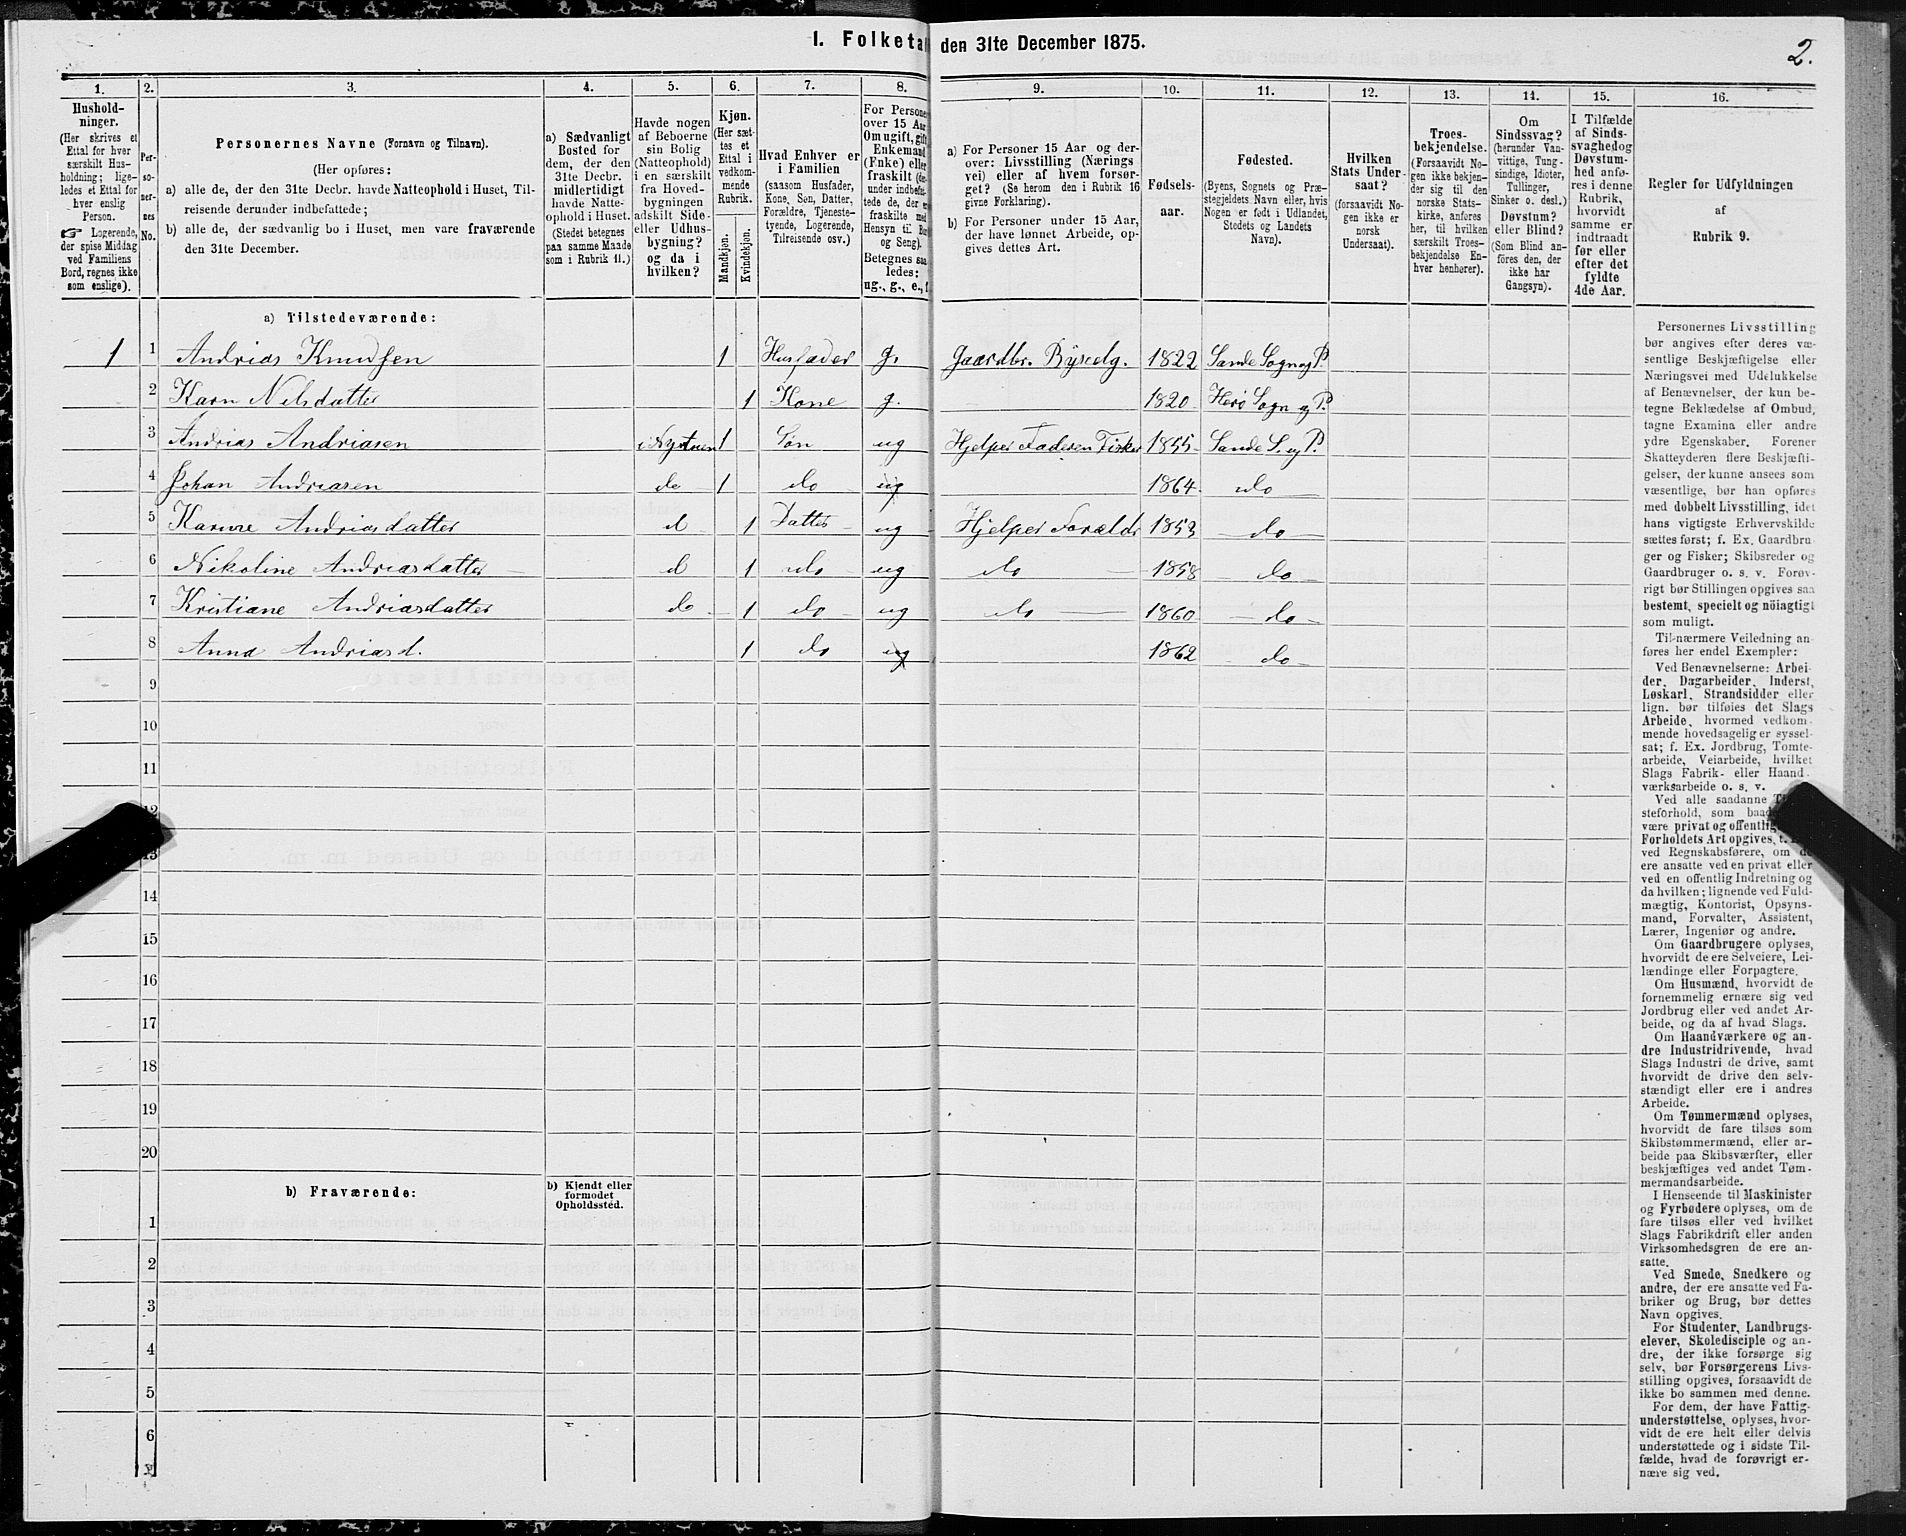 I. Folketa den 31te December 1875.
2.
1. 2. 3. 4. 5. 6. 7. 8. 9. 10. 11. 12. 13. 14. 15. 16.
Hushold-
ninger.
(Her skrives et
Ettal for hver
særskilt Hus-
holdning; lige-
ledes et Ettal for
hver enslig
Person.
☞ Logerende,
der spise Middag
ved Familiens
Bord, regnes ikke
som enslige).
Per-
so-
ner-
nes
No.
Personernes Navne (Fornavn og Tilnavn).
(Her opføres:
a) alle de, der den 31te Decbr. havde Natteophold i Huset, Til-
reisende derunder indbefattede;
b) alle de, der sædvanlig bo i Huset, men vare fraværende
den 31te December.
a) Sædvanligt
Bosted for
dem, der den
31te Decbr.
midlertidigt
havde Natte-
ophold i Huset.
(Stedet betegnes
paa samme Maade
som i Rubrik 11.)
Havde nogen
af Beboerne
sin Bolig
(Natteophold)
i en særskilt
fra Hoved-
bygningen
adskilt Side-
eller Udhus-
bygning?
og da i
hvilken?
Kjøn.
(Her sæt-
tes et
Ettal i
vedkom-
mende
Rubrik.
Mandkjøn.
Kvindekjøn.
Hvad Enhver er
i Familien
(saasom Husfader,
Kone, Søn, Datter,
Forældre, Tjeneste-
tyende, Logerende,
Tilreisende osv.)
For Persone
over 15 Aar
Om ugift, gift
Enkemand
(Enke) eller
fraskilt
under indbefat-
tede de, der er
fraskilte med
Hensyn til Bo
og Seng).
Betegnes saa
ledes:
ug., g., e.,
a) For Personer 15 Aar og der-
over: Livsstilling (Nærings
vei) eller af hvem forsør-
get? (Se herom den i Rubrik 16
givne Forklaring).
b) For Personer under 15 Aar,
der have lønnet Arbeide, op-
gives dettes Art.
Fødsels-
aar.
Fødested.
(Byens, Sognets og Præ-
stegjeldets Navn eller, hvis
Nogen er født i Udlandet,
Stedets og Landets
Navn).
Hvilken
Stats Under-
saat?
(forsaavidt No-
gen ikke er
norsk
Undersaat).
Troes-
bekjendelse.
(Forsaavidt No-
gen ikke bekjen-
der sig til den
norske Stats-
kirke, anføres
her, til hvilken
særskilt Troes-
bekjendelse En-
hver henhører).
Om
Sindssvag?
(herunder Van-
vittige, Tung-
sindige, Idioter,
Tullinger,
Sinker o. desl.)
Døvstum?
eller Blind?
(Som Blind an-
føres den, der
ikke har
Gangsyn).
I Tilfælde
af Sinds-
svaghed og
Døvstum-
hed anfø-
res i denne
Rubrik,
hvorvidt
samme er
indtraadt
før eller
efter det
fyldte
4de Aar.
Regler for Udfyldningen
af
Rubrik 9.
a) Tilstedeværende:
1 1 Andrias Knudsen 1 Husfader g. Gaardbr. Bysselg. 1822 Sande Sogn og P.
2 Karn Nilsdatter 1 Kone g. 1820 Herø Sogn og P.
3 Andrias Andriasen 1 Søn ug Hjelper Faderen Fisker 1855 Sande S. og P.
4 Johan Andriasen do 1 do ug 1864 do
5 Andriasdatter d 1 Datter ug Hjelper Foræld 1853 do
6 Nikoline Andriasdatter d 1 do ug do 1858 do
7 Kristiane Andriasdatter do 1 do ug do 1860 do
8 Anna Andriasd. 1 do ug 1862 do
9
10
11
12
13
14
15
16
17
18
19
20
b) Fraværende:
b) Kjendt eller
formodet
Opholdssted.
1
2
3
4
5
6
Personernes Livsstilling
bør angives efter deres væ-
sentlige Beskjæftigelse eller
Næringsvei med Udelukkelse
af Benævnelser, der kun be-
tegne Beklædelse af Ombud,
tagne Examina eller andre
ydre Egenskaber. Forener
Skatteyderen flere Beskjæfti-
gelser, der kunne ansees som
væsentlige, bør han opføres
med dobbelt Livsstilling, idet
hans vigtigste Erhvervskilde
sættes først; f. Ex. Gaardbru-
ger og Fisker; Skibsreder og
Gaardbruger o. s. v. Forøv-
rigt bør Stillingen opgives saa
bestemt, specielt og nöiagtigt
som muligt.
Til nærmere Veiledning an-
føres her endel Exempler:
Ved Benævnelserne: Arbei-
der, Dagarbeider, Inderst,
Løskarl, Strandsidder eller
lign. bør tilføies det Slags
Arbeide, hvormed vedkom-
mende hovedsagelig er syssel-
sat; f. Ex. Jordbrug, Tomte-
arbeide, Veiarbeide, hvilket
Slags Fabrik- eller Haand-
værksarbeide o. s. v.
Ved alle saadanne
steforhold, som
være privat og offentlig
Forholdets Art opgives,
ved Regnskabsførere, om de
ere ansatte ved en privat eller
ved en offentlig Indretning og
da hvilken; lignende ved Fuld-
mægtig, Kontorist, Opsyns-
mand, Forvalter, Assistent,
Lærer, Ingeniør og andre.
Om Gaardbrugere oplyses,
hvorvidt de ere Selveiere, Lei-
lændinge eller Forpagtere.
Om Husmænd, hvorvidt de
fornemmelig ernære sig ved
Jordbrug eller ved andet Ar-
beide, og da af hvad Slags.
Om Haandværkere og an-
dre Industridrivende, hvad
Slags Industri de drive, samt
hvorvidt de drive den selv-
stændigt eller ere i andres
Arbeide.
Om Tømmermænd oplyses,
hvorvidt de fare tilsøs som
Skibstømmermænd, eller ar-
beide paa Skibsværfter, eller
beskjæftiges ved andet Tøm-
mermandsarbeide.
I Henseende til Maskinister
og Fyrbødere oplyses, om de
fare tilsøs eller ved hvilket
Slags Fabrikdrift eller anden
Virksomhedsgren de ere an-
satte.
Ved Smede, Snedkere og
andre, der ere ansatte ved Fa-
briker og Brug, bør dettes
Navn opgives.
For Studenter, Landbrugs-
elever, Skoledisciple og an-
dre, der ikke forsørge sig
selv, bør Forsørgerens Livs-
stilling opgives, forsaavidt de
ikke bo sammen med denne.
For dem, der have Fattig-
understøttelse, oplyses, hvor-
vidt de ere helt eller delvis
understøttede og i sidste Til-
fælde, hvad de forøvrigt er-
nære sig ved.